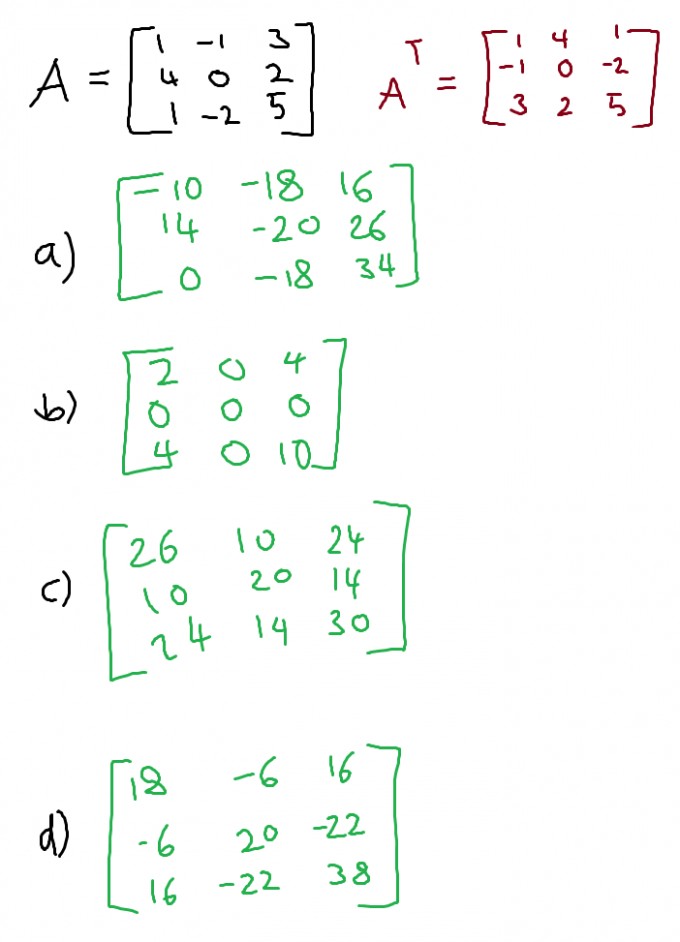 A = [1 -1 3 A^T = [1 4 1
4 0 2 -1 0 -2
1 -2 5] 3 2 5]
a) [-10 -18 16
14 -20 26
0 -18 34]
b) [2 0 4
0 0 0
4 0 10]
c) [26 10 24
10 20 14
24 14 30]
d) [18 -6 16
-6 20 -22
16 -22 38]